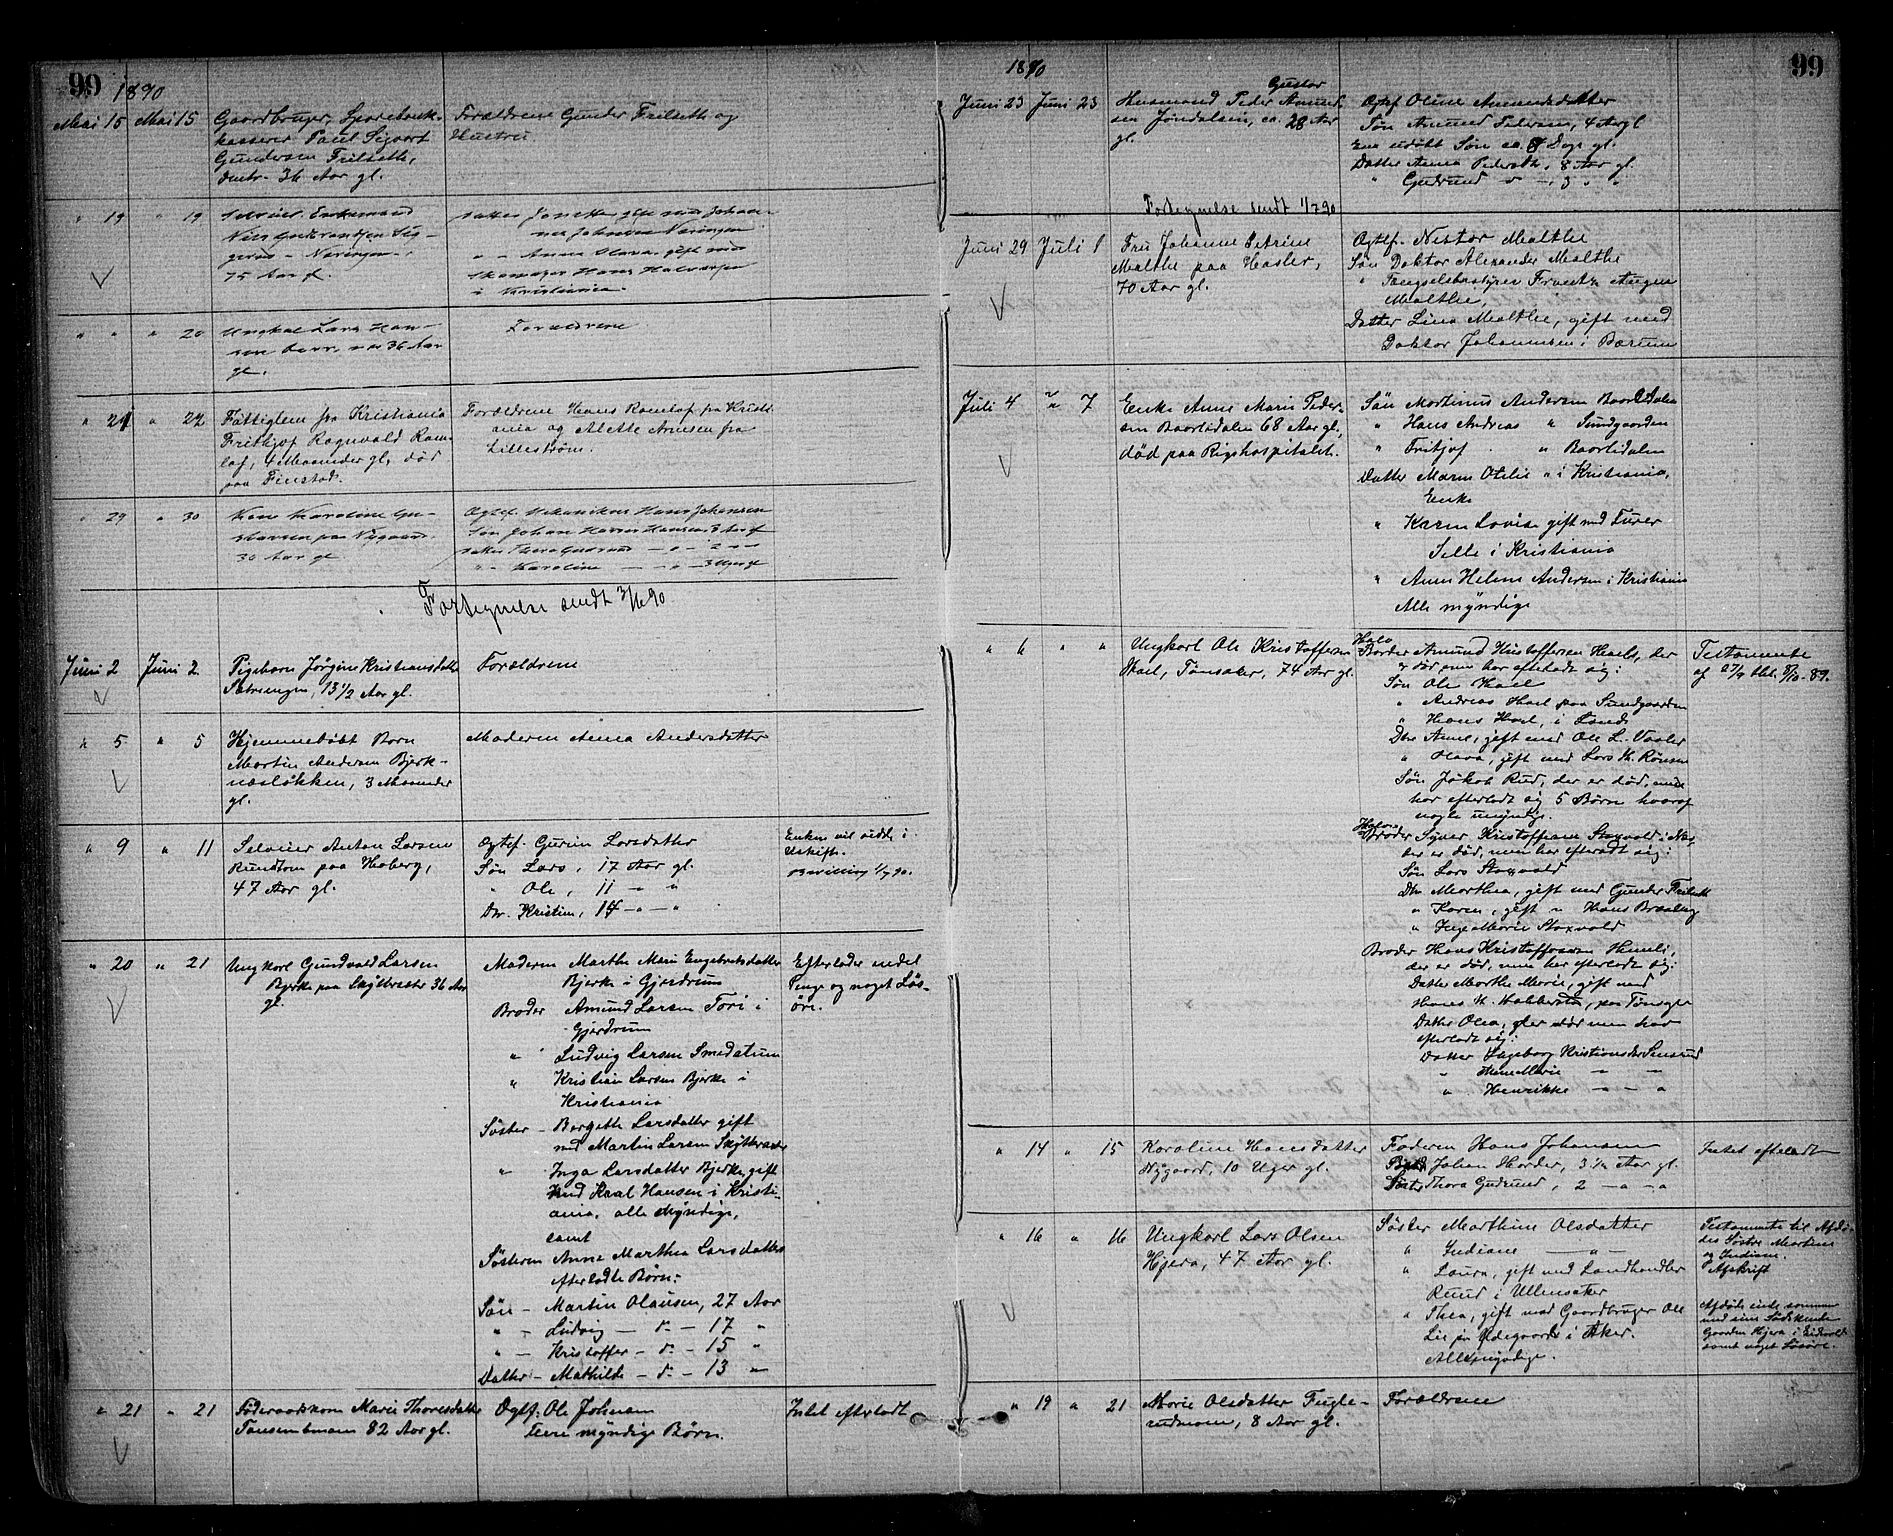 99
1890
Mai 15 Mai 15 Gaardbruger, Sparebank-
kasserer Paul Sigvart
Gundersen Frilseth,
36 Aar gl.
Forældrene Gunder Frilseth og
Hustru.
" 19 " 19 Selveier Enkemand
Nils Gulbrandsen
75 Aar gl.
Datter Janette gift med Johan-
nes Johnsen
" - Anne Olava gift med
Skomager Hans Halvorsen
i Kristiania.
" " " 20 Ungkarl Lars Han-
sen 36 Aar
gl.
Forældrene
" 21 " 22 Fattiglem fra Kristiania
Frithjof Ragnvald Ram-
lof, 4 Maaneder gl, død
paa Finstad.
Forældrene Hans Ramlof fra Kristi-
ania og Alette Arnesen fra
Lillestrøm.
" 29 " 30 Kone Karoline Gu-
stavsen paa Nygaard
30 Aar gl
Ogtef. Mekanikus Hans Johansen
Søn Johan Harder Hansen, 3 Aar gl
Datter Thora Gudrund - " - 2 - "
" - Karoline - " - 3 Uger gl
Fortegnelse sendt 3/6 90
Juni 2 Juni 2 Pigebarn Jørgine Kristiansdatter
Sætrengen, 13 1/2 Aar gl.
Forældrene
" 5 " 5 Hjemmedøbt Barn
Martin Andersen Bjerk-
nesløkken, 3 Maaneder
gl.
Moderen Anna Andersdatter
" 9 " 11 Selveier Anton Larsen
Rundtom paa Hoberg,
47 Aar gl.
Ogtef. Gurine Larsdatter
Søn Lars, 17 Aar gl.
" Ole, 11 - "
Dtr. Kristine, 14 - " - "
Enken vil sidde i
Uskifte.
Bevilling 1/7 90.
" 20 " 21 Ungkarl Gundvald Larsen
Bjerke paa Skytbraaten 36 Aar
gl.
Moderen Marthe Marie Engebretsdatter
Bjerke i Gjerdrum
Broder Amund Larsen Tori i
Gjerdrum
" Ludvig Larsen Smedstuen
" Kristian Larsen Bjerke i
Kristiania
Søster - Bergette Larsdatter gift
med Martin Larsen Skytbraaten
" Inga Larsdatter Bjerke, gift
med Karl Hansen i Kristi-
ania, alle Myndige,
samt
Søsteren Anne Marthea Larsdatters
efterladte Børn:
Søn - Martin Olausen, 27 Aar
" - Ludvig - " - 17 "
" - Kristoffer - " - 15 "
Datter - Mathilde - " - 13 "
Efterlader endel
Penge og noget Løs-
øre.
" 21 " 21 Føderaadskone Marie Thoresdatter
82 Aar gl.
Ogtf: Ole Johnsen
Flere myndige Børn.
Intet efterladt
1890
99
Juni 23 Juni 23 Husmand Peder Gustav Amund-
sen Jøndalseie, ca. 28 Aar
gl.
Ogtef Oline Amundsdatter
Søn Amund Pedersen, 4 Aar gl
En udøbt Søn ca. 8 Dage gl.
Datter Anna Pedersdtr, 8 Aar gl.
" Gudrund " - 3 " "
Fortegnelse sendt 1/7 90
Juni 29 Juli 1 Fru Johanne Petrine
Malthe paa Hasler,
70 Aar gl.
Ogtef. Nestor Malthe
Søn Doktor Alexander Malthe
" Fængselsbestyrer Frantz August
Malthe,
Datter Lina Malthe, gift med
Doktor Johannesen i Bærum
Juli 4 " 7 Enke Anne Marie Peder-
sen Baarlidalen 68 Aar gl,
død paa Rigshospitalet.
Søn Mortinus Andersen Baarlidalen
" Hans Andreas " Sundgaarden
" Fritjof " Baarlidalen
Datter Maren Otilie " i Kristiania,
Enke
" Karen Lovise gift med Furer
Selle i Kristiania
" Anne Helene Andersen i Kristiania
Alle myndige
" 6 " " Ungkarl Ole Kristoffersen
Hoel, Tønsaker, 74 Aar gl.
Halv
Broder Amund Kristoffersen Hoel, der
er død, men har efterladt sig:
Søn Ole Hoel
" Andreas Hoel paa Sundgaarden
" Hans Hoel, i Land
Dtr Anne, gift med Ole L. Vaaler
" Olava, gift med Lars K. Rønsen
Søn Jakob Rud, der er død, men
har efterladt sig 5 Børn hvoraf
nogle umyndige.
Halv
Broder Syver Kristoffersen Stoxvold i
der er død, men har efterladt sig:
Søn Lars Stoxvold
Dtr Marthea, gift med Gunder Frilseth
" Karen, gift " Hans Braaten
" Inge Marie Stoxvold
Broder Hans Kristoffersen Hemli,
der er død, men har efterladt sig:
Datter Marthe Marie, gift med
Hans H. Habberstad, paa
Datter Olea, der er død men har
efterladt sig:
Datter Ingeborg Kristiansdtr
" Anne Marie - " - "
" Henrikke - " - "
Testamente
af 27/9 thl. 8/10 - 89.
" 14 " 15 Karoline Hansdatter
Nygaard, 10 Uger gl.
Faderen Hans Johansen
Brod Johan Harder, 3 1/2 Aar gl.
Søster Thora Gudrund, 2 - " - "
Intet efterladt
" 16 " 16 Ungkarl Lars Olsen
Hjera, 47 Aar gl.
Søster Marthine Olsdatter
" Indiane - " -
" Laura, gift med Landhandler
Ruud i Ullensaker
" Thea, gift med Gaardbruger Ole
Lie paa Ødegaard i Aker.
Alle myndige.
Testamente til Afdø-
des Søstre Martine
og Indiane.
Afskrift
Afdøde eiede sammen
med sine Sødskende
Gaarden Hjera i Eidsvold
samt noget Løsøre.
" 19 " 21 Marie Olsdatter Fugle-
rudmoen, 8 Aar gl.
Forældrene